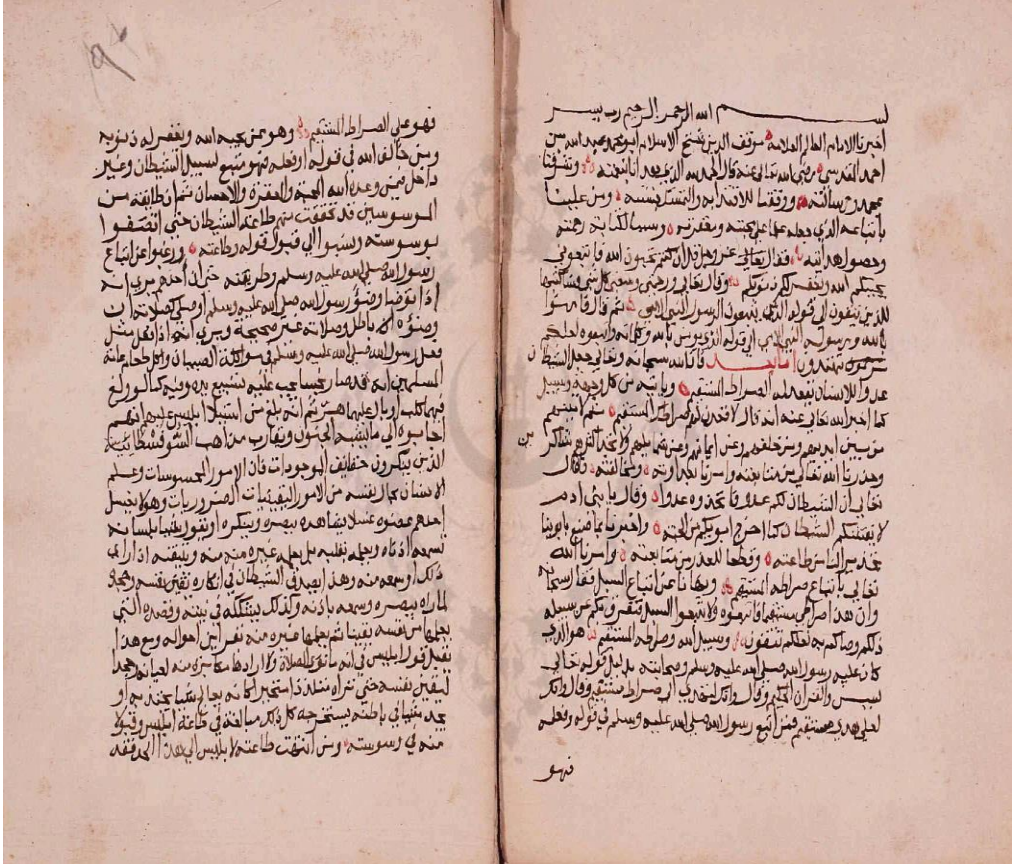 بســـم الله الرحمن الرحيم رب يســـر
اخبرنا الامام العالم العلامة موفق الدين شيخ الاسلام ابو محمد عبد الله بن
احمد المقدسي رضي الله تعالى عنه قال الحمد لله الذي هدانا بنعمته وشرفنا
بمحمد ورسالته ووفقنا للاقتداء به والتمسك بسنته ومن علينا
باتباعه الذي جعله علما على محبته ومغفرته وسببا لكتابة رحمته
وحصول هدايته فقال تعالى عز وجل قل ان كنتم تحبون الله فاتبعوني
يحببكم الله ويغفر لكم ذنوبكم وقال تعالى ورحمتي وسعت كل شيء فساكتبها
للذين يتقون الى قوله الذين يتبعون الرسول النبي الامي ثم قال فامنوا
بالله ورسوله النبي الامي الذي يومن بالله وكلماته واتبعوه لعلكم
تهتدون اما بعـــد فان الله سبحانه وتعالى جعل الشيطان
عدوا للانسان يقعد له الصراط المستقيم وياتيه من كل وجهة وسبيل
كما اخبر الله تعالى عنه انه قال لاقعدن لهم صراطك المستقيم ثم لاتينهم
من بين ايديهم ومن خلفهم وعن ايمانهم وعن شمايلهم ولا تجد اكثرهم شاكرين
وحذرنا الله تعالى من متابعته وامرنا بمعاداوته ومخالفته فقال
تعالى ان الشيطان لكم عدو فاتخذوه عدوا وقال يا بني ادم
لا يفتننكم الشيطان كما اخرج ابويكم من الجنة واخبرنا بما صنع بابوينا
تحذيرا لناس طاعته وقطعا للعذر من متابعته وامرنا الله
تعالى باتباع صراطه المستقيم ونهانا عن اتباع السبل فقال سبحانه
وان هذا صراطي مستقيما فاتبعوه ولا تتبعوا السبل فتفرق بكم عن سبيله
ذلكم وصاكم به لعلكم تتقون وسبيل الله وصراطه المستقيم هو الذي
كان عليه رسول الله صلى الله عليه وسلم وصحابته بدليل قوله تعالى
يس والقران الحكيم وقال وانك لتهدي الى صراط مستقيم وقال وانك
لعلى هدى مستقيم فمن اتبع رسول الله صلى الله عليه وسلم في قوله وفعله
فهو
فهو على الصراط المستقيم وهو ممن يحبه الله ويغفر له ذنوبه
ومن خالف الله في قوله او فعله فهو متبع لسبيل الشيطان وغير
داخل فيمن وعده الله الجنة والمغفرة والاحسان ثم ان طائفة من
الموسوسين قد تحققت منهم طاعة الشيطان حتى اتصفوا
بوسوسته ونسبوا الى قبول قوله وطاعته ورغبوا عن اتباع
رسول الله صلى الله عليه وسلم وطريقته حتى ان احدهم يرى انه
اذا توضا وضوء رسول الله صلى الله عليه وسلم او صلى كصلاته ان
وضوءه باطل وصلاته غير صحيحة ويرى انه اذا فعل مثل
فعل رسول الله صلى الله عليه وسلم في مواكلة الصبيان واكل طعام عامة
المسلمين انه قد صار نجسا يجب عليه تسبيع يده وفيه كما لو ولغ
فيهما كلب او بال عليهما هر ثم انه بلغ من استيلا ابليس عليهم انهم
اجابوه الى ما يشبه الجنون ويقارب مذاهب السوفسطائية
الذين ينكرون حقايق الموجودات فان الامور المحسوسات وعلم
الانسان بحال نفسه من الامور اليقينيات الضروريات وهولا يغسل
احدهم عضوه غسلا يشاهده ببصره ويتكبره او يقول شيا بلسانه
تسمعه اذناه ويعلم بقلبه بل يعلمه غيره منه ويتيقنه اذا راى
ذلك او سمعه منه وهذا يصدق الشيطان في انكاره يقين نفسه وجحده
لما راه ببصره وسمعه باذنه وكذلك يشككه في نيته وقصده التي
يعلمها من نفسه يقينا ثم يعلمها غيره منه بقراين احواله ومع هذا
يقبل قول ابليس في انه ما نوى الصلاة ولا ارادها مكابرة منه لعيانه وجحدا
ليقين نفسه حتى تراه متلددا متحيرا كانه يعالج شيا يجتذبه او
يجد شيا في باطنه يستخرجه كل ذلك مبالغة في طاعة ابليس وقبولا
منه في وسوسته ومن انتهت طاعته لابليس الى هذا الحد فقد